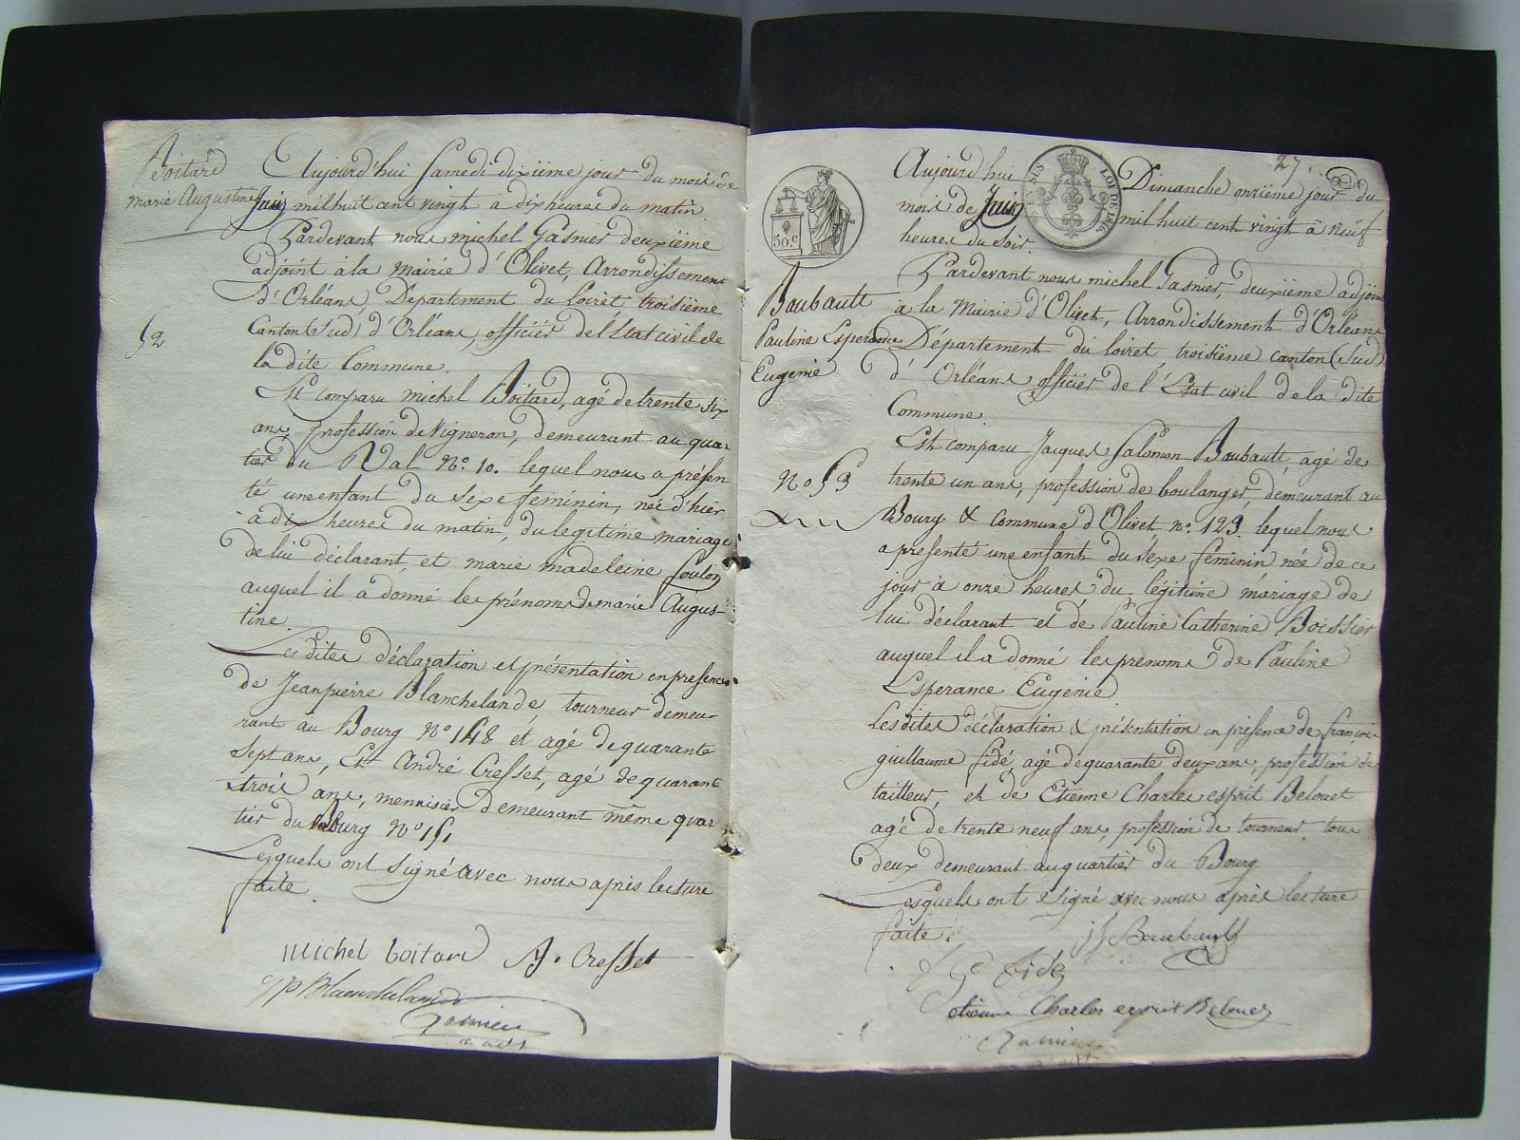 Boitard
marie Augustine
52
Aujourd'hui Samedi dixiéme jour du mois de
Juin mil huit cent vingt a dix heures du matin.
Pardevant nous michel Gasnier deuxiéme
adjoint à la mairie d'Olivet, Arrondissement
d'Orléans, Département du Loiret, troisiéme
Canton (Sud) d'Orléans, officier de l'Etat civil de
la dite Commune.
Est comparu michel Boitard, agé de trente six
ans, profession de Vigneron, demeurant au quar
tier du Val N.o 10. lequel nous a présen
té une enfant du sexe feminin, née d'hier
à dix heures du matin, du legitime mariage
de lui déclarant, et marie madeleine Foulon
auquel il a donné les prénoms de marie Augus-
tine.
Les dites déclaration et présentation en presence
de Jean pierre Blanchelande, tourneur demeu-
rant au Bourg N.o 148 et agé de quarante
sept ans, Et André Cresset, agé de quarant
trois ans, menuisier demeurant même quar
tier du Bourg N.o 151
Lesquels ont signé avec nous après lecture
faite.
michel boitard A. Cresset
J P Blanchelande
Gasnier
adjt
27.
50.c
LOI DE 1816
Baubault
Pauline Esperance
Eugenie
N.o 53
Aujourd'hui Dimanche onziéme jour du
mois de Juin mil huit cent vingt à neuf
heures du soir.
Pardevant nous michel Gasnier, deuxiéme adjoint
à la Mairie d'Olivet, Arrondissement d'Orléans
Département du Loiret troisiéme canton (Sud)
d'Orléans officier de l'Etat civil de la dite
Commune.
Est comparu Jacques Salomon Baubault agé de
trente un ans, profession de boulanger, demeurant au
Bourg & Commune d'Olivet n.o 123. lequel nous
a presenté une enfant du sexe féminin née de ce
jour à onze heures du légitime mariage de
lui déclarant et de Pauline Catherine Boissier
auquel il a donné les prenoms de Pauline
Esperance Eugénie
Les dites déclaration & présentation en presence de françois
guillaume fidé, agé de quarante deux ans, profession de
tailleur, et de Etienne Charles esprit Belouet
agé de trente neuf ans, profession de tourneur. tous
deux demeurant au quartier du Bourg
Lesquels ont signé avec nous après lecture
faite.
J S Baubault
f G.e Fidé
etienne Charles esprit Belouet
Gasnier
adjt